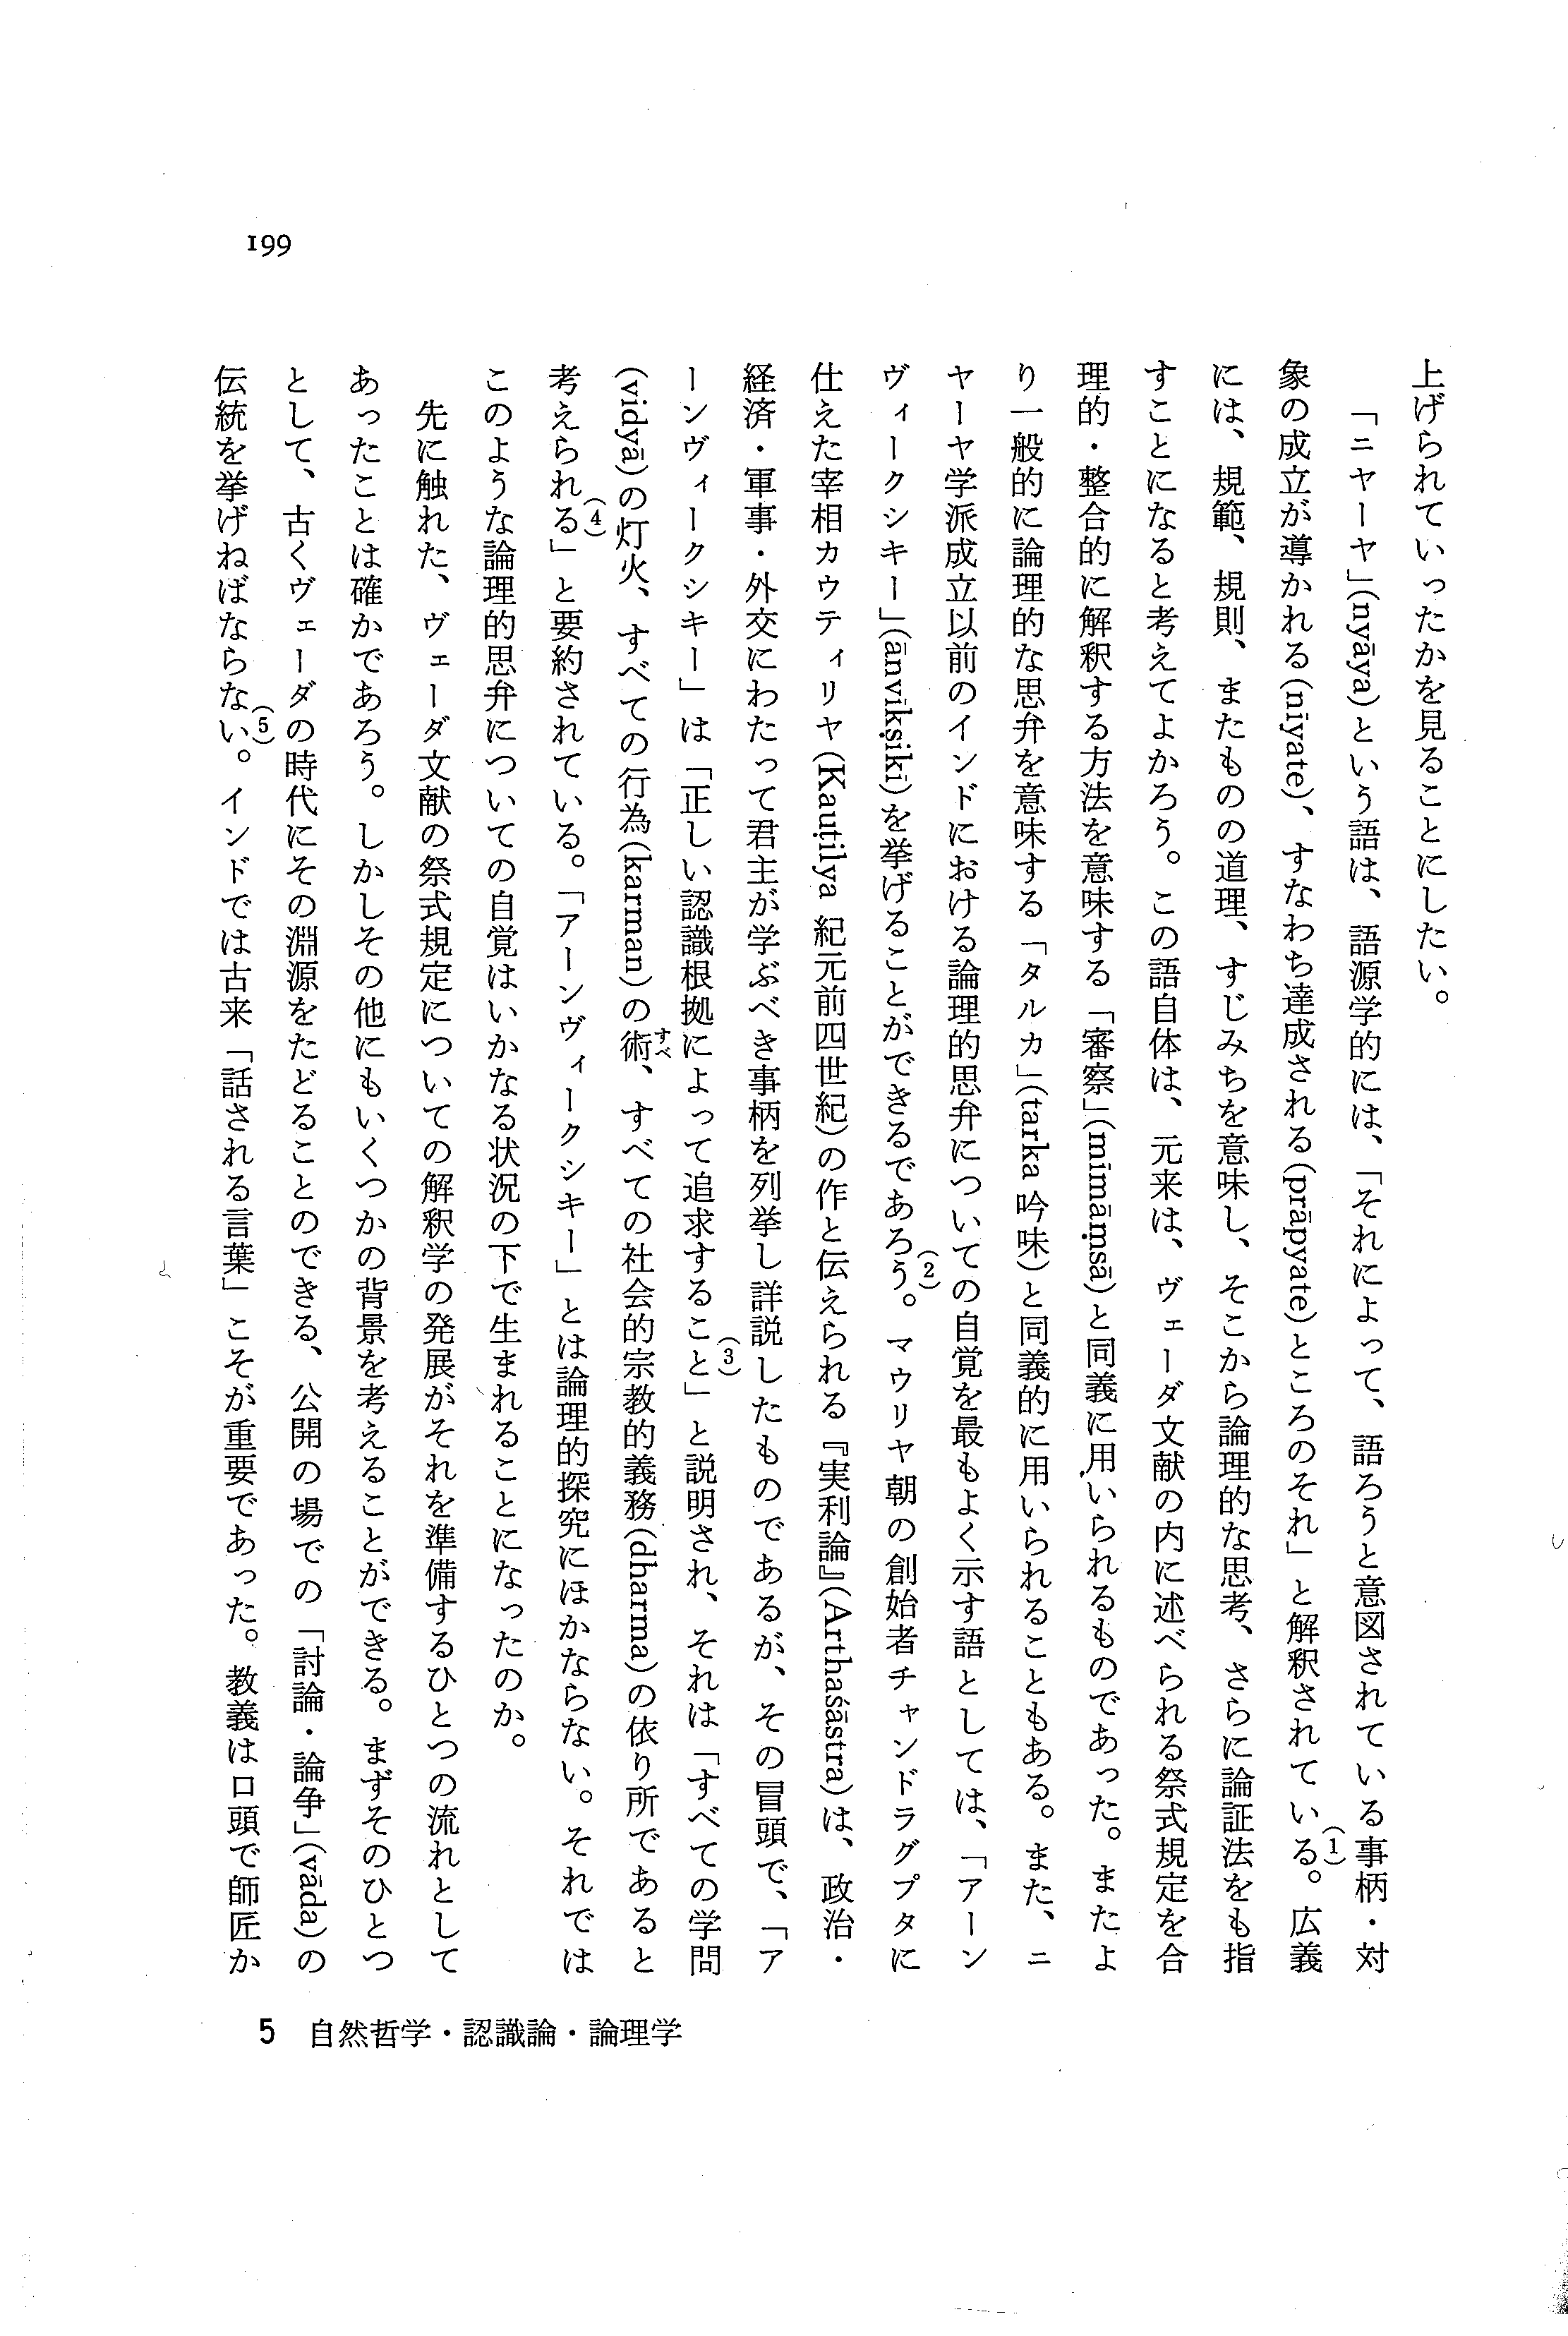 上げられていったかを見ることにしたい。
「ニヤーヤ」(nyāya)という語は、語源学的には、「それによって、語ろうと意図されている事柄・対
象の成立が導かれる(nīyate)、すなわち達成される(prāpyate)ところのそれ」と解釈されている(1)。広義
には、規範、規則、またものの道理、すじみちを意味し、そこから論理的な思考、さらに論証法をも指
すことになると考えてよかろう。この語自体は、元来は、ヴェーダ文献の内に述べられる祭式規定を合
理的・整合的に解釈する方法を意味する「審察」(mīmāṃsā)と同義に用いられるものであった。またよ
り一般的に論理的な思弁を意味する「タルカ」(tarka 吟味)と同義的に用いられることもある。また、ニ
ヤーヤ学派成立以前のインドにおける論理的思弁についての自覚を最もよく示す語としては、「アーン
ヴィークシキー」(ānvīkṣikī)を挙げることができるであろう(2)。マウリヤ朝の創始者チャンドラグプタに
仕えた宰相カウティリヤ(Kauṭilya 紀元前四世紀)の作と伝えられる『実利論』(Arthaśāstra)は、政治・
経済・軍事・外交にわたって君主が学ぶべき事柄を列挙し詳説したものであるが、その冒頭で、「ア
ーンヴィークシキー」は「正しい認識根拠によって追求すること(3)」と説明され、それは「すべての学問
(vidyā)の灯火、すべての行為(karman)の術すべ、すべての社会的宗教的義務(dharma)の依り所であると
考えられる(4)」と要約されている。「アーンヴィークシキー」とは論理的探究にほかならない。それでは
このような論理的思弁についての自覚はいかなる状況の下で生まれることになったのか。
先に触れた、ヴェーダ文献の祭式規定についての解釈学の発展がそれを準備するひとつの流れとして
あったことは確かであろう。しかしその他にもいくつかの背景を考えることができる。まずそのひとつ
として、古くヴェーダの時代にその淵源をたどることのできる、公開の場での「討論・論争」(vāda)の
伝統を挙げねばならない(5)。インドでは古来「話される言葉」こそが重要であった。教義は口頭で師匠か
5 自然哲学・認識論・論理学
199